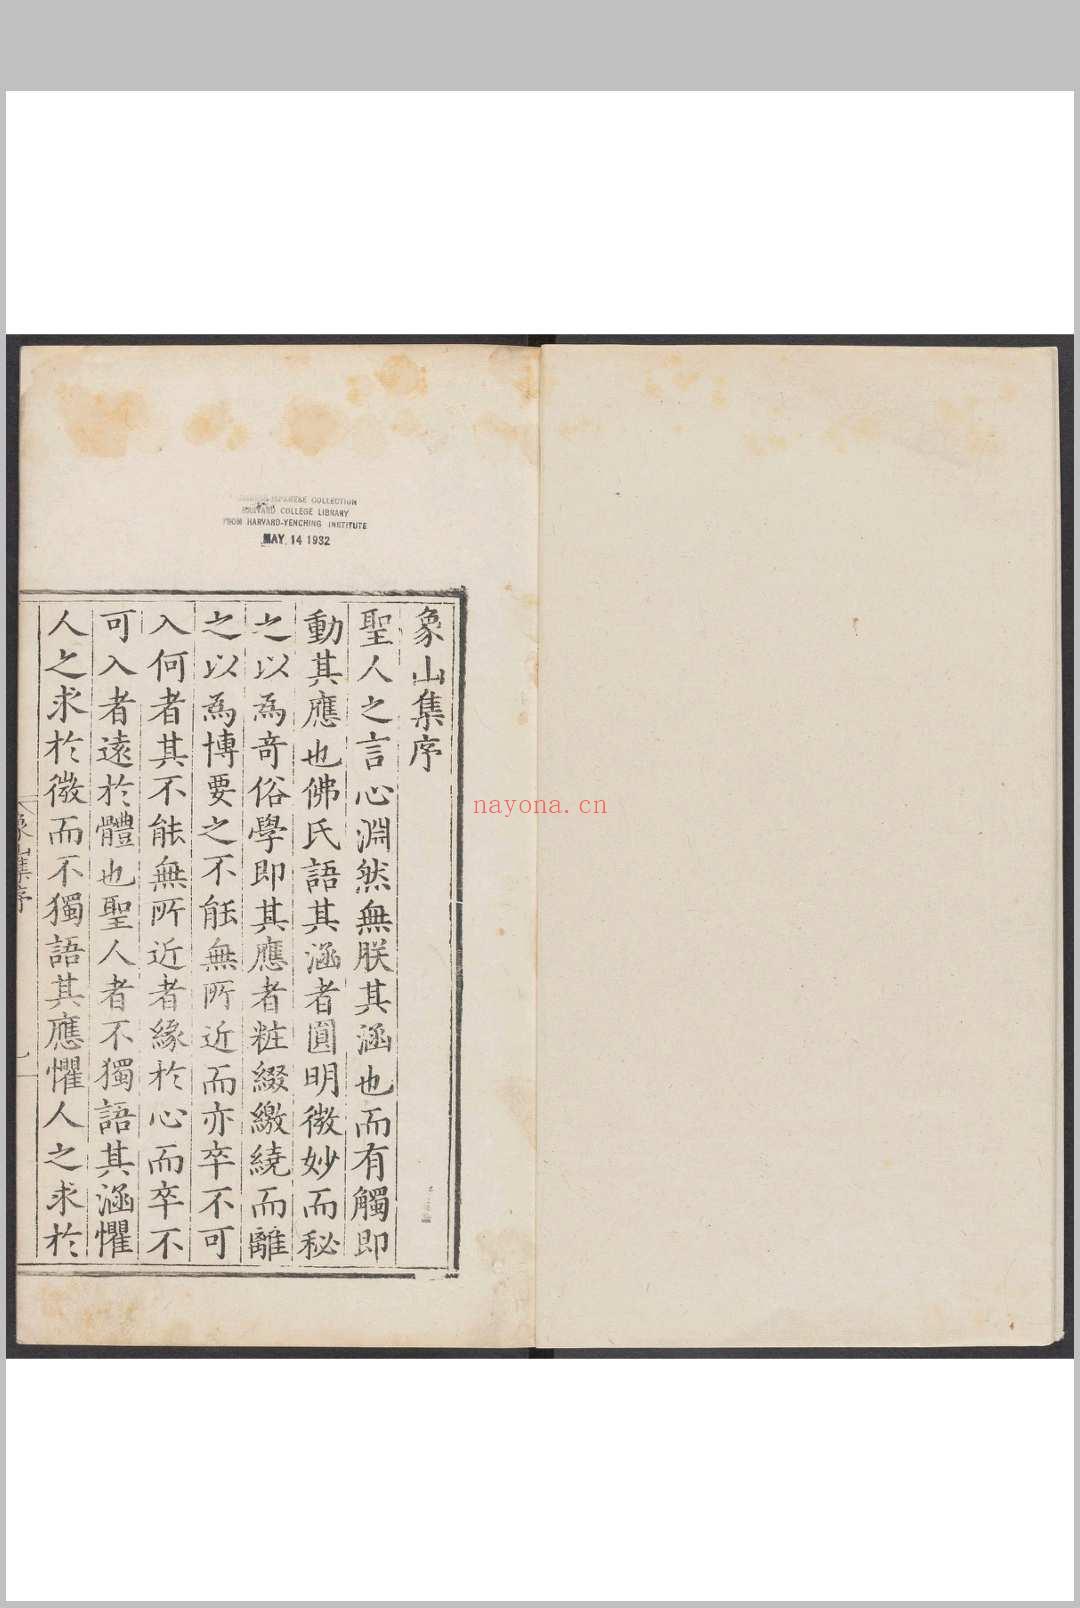 JAPANESE COLLECTION
HARVARD COLLEGE LIBRARY
FROM HARVARD-YENCHING INSTITUTE
MAY 14 1932
象山集序
聖人之言心淵然無朕其涵也而有觸即
動其應也佛氏語其涵者圓明微妙而秘
之以為竒俗學即其應者粧綴繳繞而離
之以為博要之不能無所近而亦卒不可
入何者其不能無所近者緣於心而卒不
可入者遠於體也聖人者不獨語其涵懼
人之求於微而不獨語其應懼人之求於
象山集序
nayona.cn